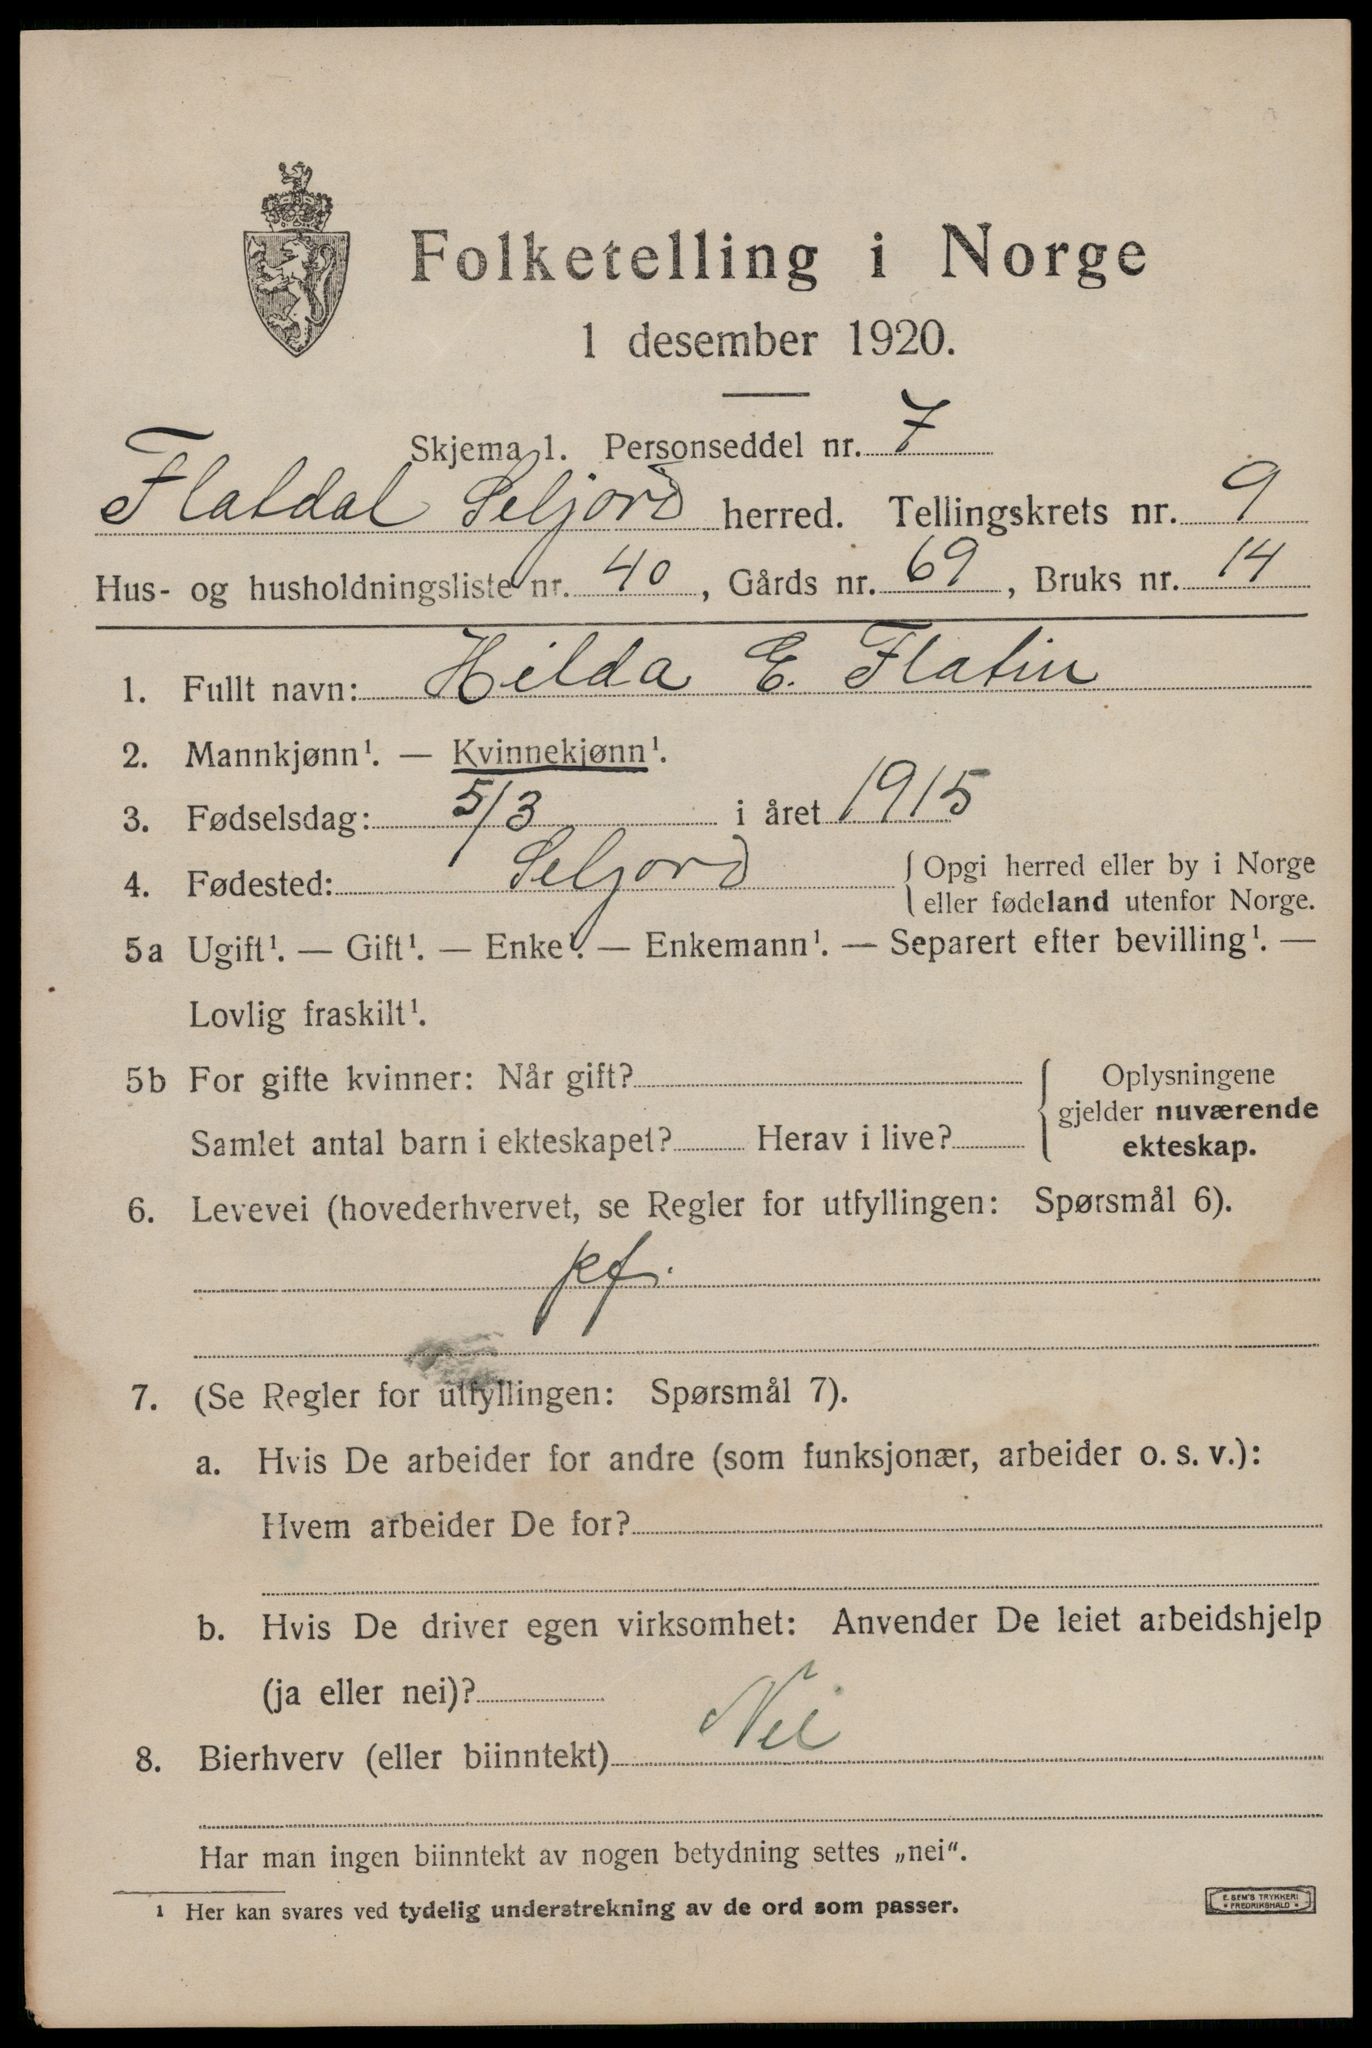 Folketelling i Norge
1 desember 1920.
Skjema 1. Personseddel nr. 7
Flatdal Seljord herred. Tellingskrets nr. 9
Hus- og husholdningsliste nr. 40, Gårds nr. 69, Bruks nr. 14
1. Fullt navn: Hilda E. Flatin
2. Mannkjønn¹. — Kvinnekjønn¹.
3. Fødselsdag: 5/3 i året 1915
4. Fødested: Seljord { Opgi herred eller by i Norge
eller fødeland utenfor Norge.
5a Ugift¹. — Gift¹. — Enke¹. — Enkemann¹. — Separert efter bevilling¹. —
Lovlig fraskilt¹.
5b For gifte kvinner: Når gift?
Samlet antal barn i ekteskapet? Herav i live?
Oplysningene
gjelder nuværende
ekteskap.
6. Levevei (hovederhvervet, se Regler for utfyllingen: Spørsmål 6).
pf.
7. (Se Regler for utfyllingen: Spørsmål 7).
a. Hvis De arbeider for andre (som funksjonær, arbeider o. s. v.):
Hvem arbeider De for?
b. Hvis De driver egen virksomhet: Anvender De leiet arbeidshjelp
(ja eller nei)?
8. Bierhverv (eller biinntekt) Nei
Har man ingen biinntekt av nogen betydning settes „nei“.
¹ Her kan svares ved tydelig understrekning av de ord som passer.
E. SEM'S TRYKKERI
* FREDRIKSHALD *